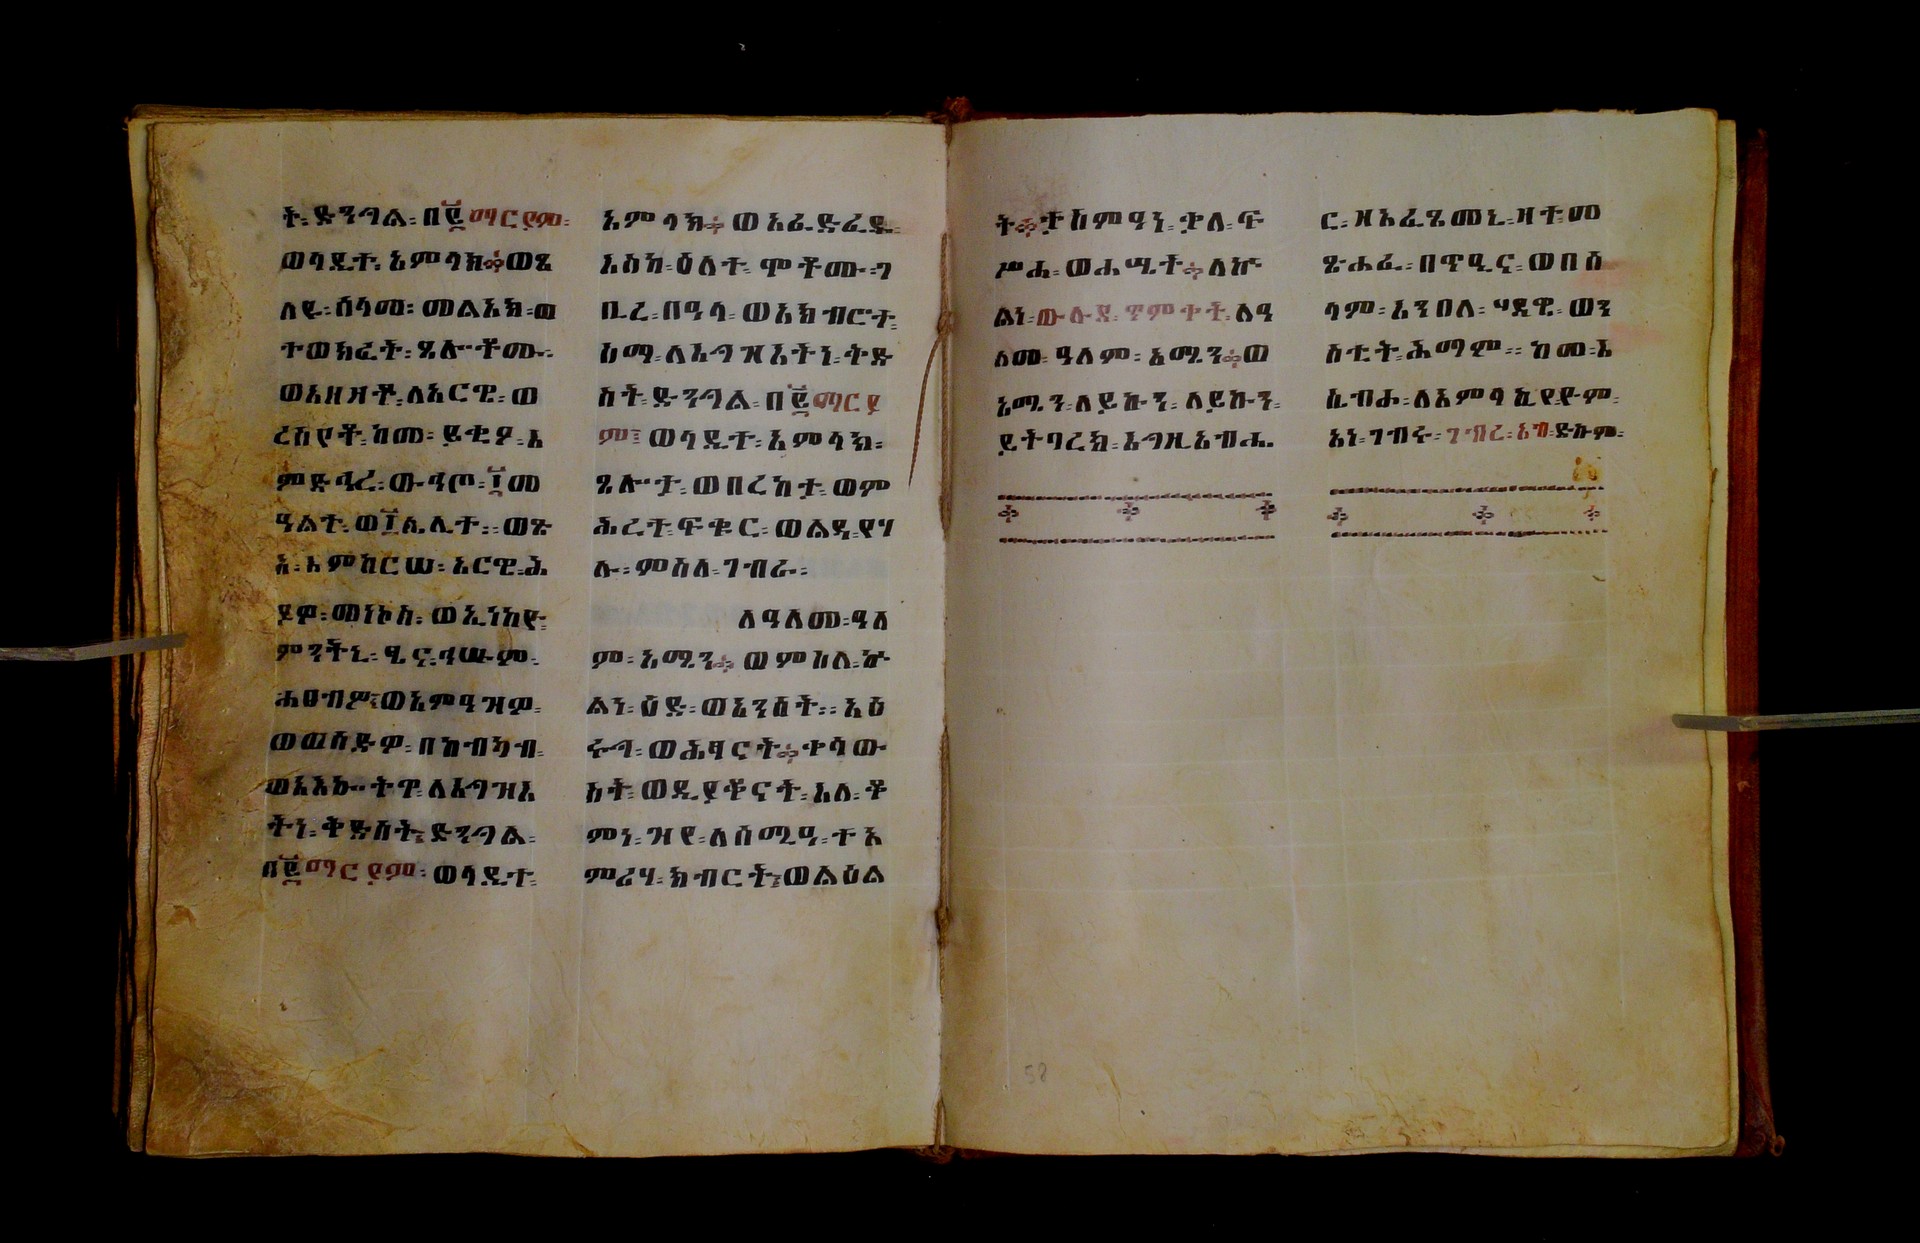 ት፡ ድንግል፡ በ፪ማርያም፡
ወላዲተ፡ አምላክ፨ወጸ
ለየ፡ ሰላመ፡ መልአክ፡ወ
ተወክፈት፡ ጸሎቶሙ፡
ወአዘዘቶ፡ ለአርዌ፡ ወ
ረሰየቶ፡ ከመ፡ ይቁም፡እ
ምድኅረ፡ ውኅጦ፡ ፲መ
ዓልተ፡ ወ፲ሌሊተ። ወጽ
አ፡ እምከርሠ፡ አርዌ፡ሕ
ያው፡ መነኮስ፡ ወኢነከየ፡
ምንትኒ፡ ዒና፡ ኅሡም፡
ሐፀብዎ፤ወእምዓዝዎ፡
ወወሰድዎ፡ በከብካብ፡
ወአእኰትዋ፡ ለእግዝእ
ትነ፡ ቅድስት፤ ድንግል፡
በ፪ማርያም፡ ወላዲተ፡
አምላክ፨ ወአፈድፈዱ፡
እስከ፡ ዕለተ፡ ሞቶሙ፡ ገ
ቢረ፡ በዓላ፡ ወአክብርት፡
ስማ፡ ለእግዝእትነ፡ ቅድ
ስት፡ ድንግል፡ በ፪ማርያ
ም፤ ወላዲተ፡ አምላክ፡
ጸሎታ፡ ወበረከታ፡ ወም
ሕረተ፡ ፍቁር፡ ወልዳ፡የሃ
ሉ፡ ምስለ፡ ገብራ፡
ለዓለመ፡ ዓለ
ም፡ አሜን፨ ወምስለ፡ ኵ
ልነ፡ ዕድ፡ ወአንስት። አዕ
ሩግ፡ ወሕፃናት፨ቀሳው
ስት፡ ወዲያቆናት፡ እለ፡ ቆ
ምነ፡ ዝየ፡ ለሰሚዓ፡ ተአ
ምሪሃ፡ ክብርት፤ወልዕል
ት፨ታስምዓነ፡ ቃለ፡ ፍ
ሥሐ፡ ወሐሤት፨ ለኵ
ልነ፡ ውሉደ፡ ጥምቀት፡ ለዓ
ለመ፡ ዓለም፡ አሜን፨ወ
አሜን፡ ለይኩን፡ ለይኩን፡
ይትባረክ፡ እግዚአብሔ
ር፡ ዘአፈጸመኒ፡ ዘተ፡መ
ጽሐፈ፡ በጥዒና፡ ወበሰ
ላም፡ እንበለ፡ ኃዴዊ፡ ወን
ስቲት፡ ሕማም። ከመ፡ እ
ሴብሖ፡ ለአምላኪየዮም፡
አነ፡ ገብሩ፡ ገብረ፡ አብ፡ ድኩም፡
58